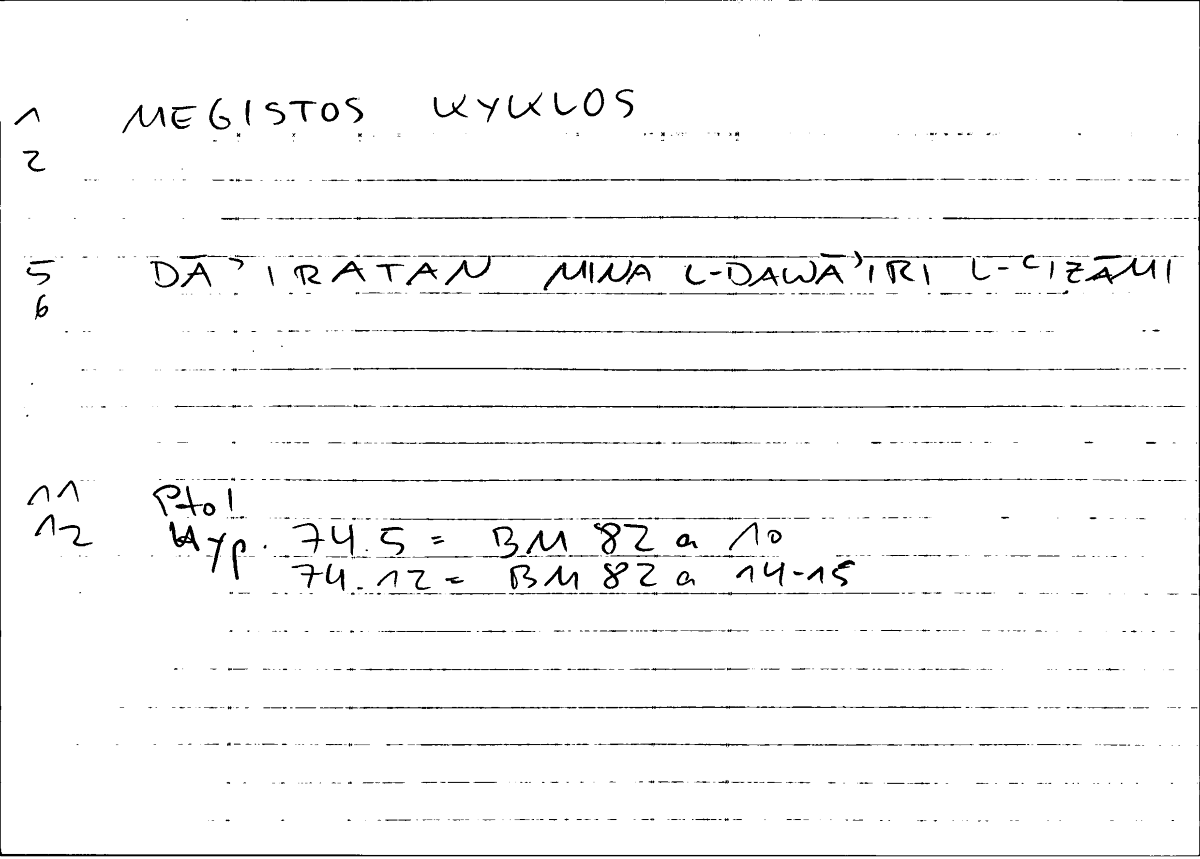 1 MEGISTOS KYKLOS
2
5 DĀʾIRATAN MINA L-DAWĀʾIRI L-ʿIZĀMI
6
11 Ptol
12 Hyp. 74.5 = BM 82 a 10
74.12 = BM 82 a 14-15